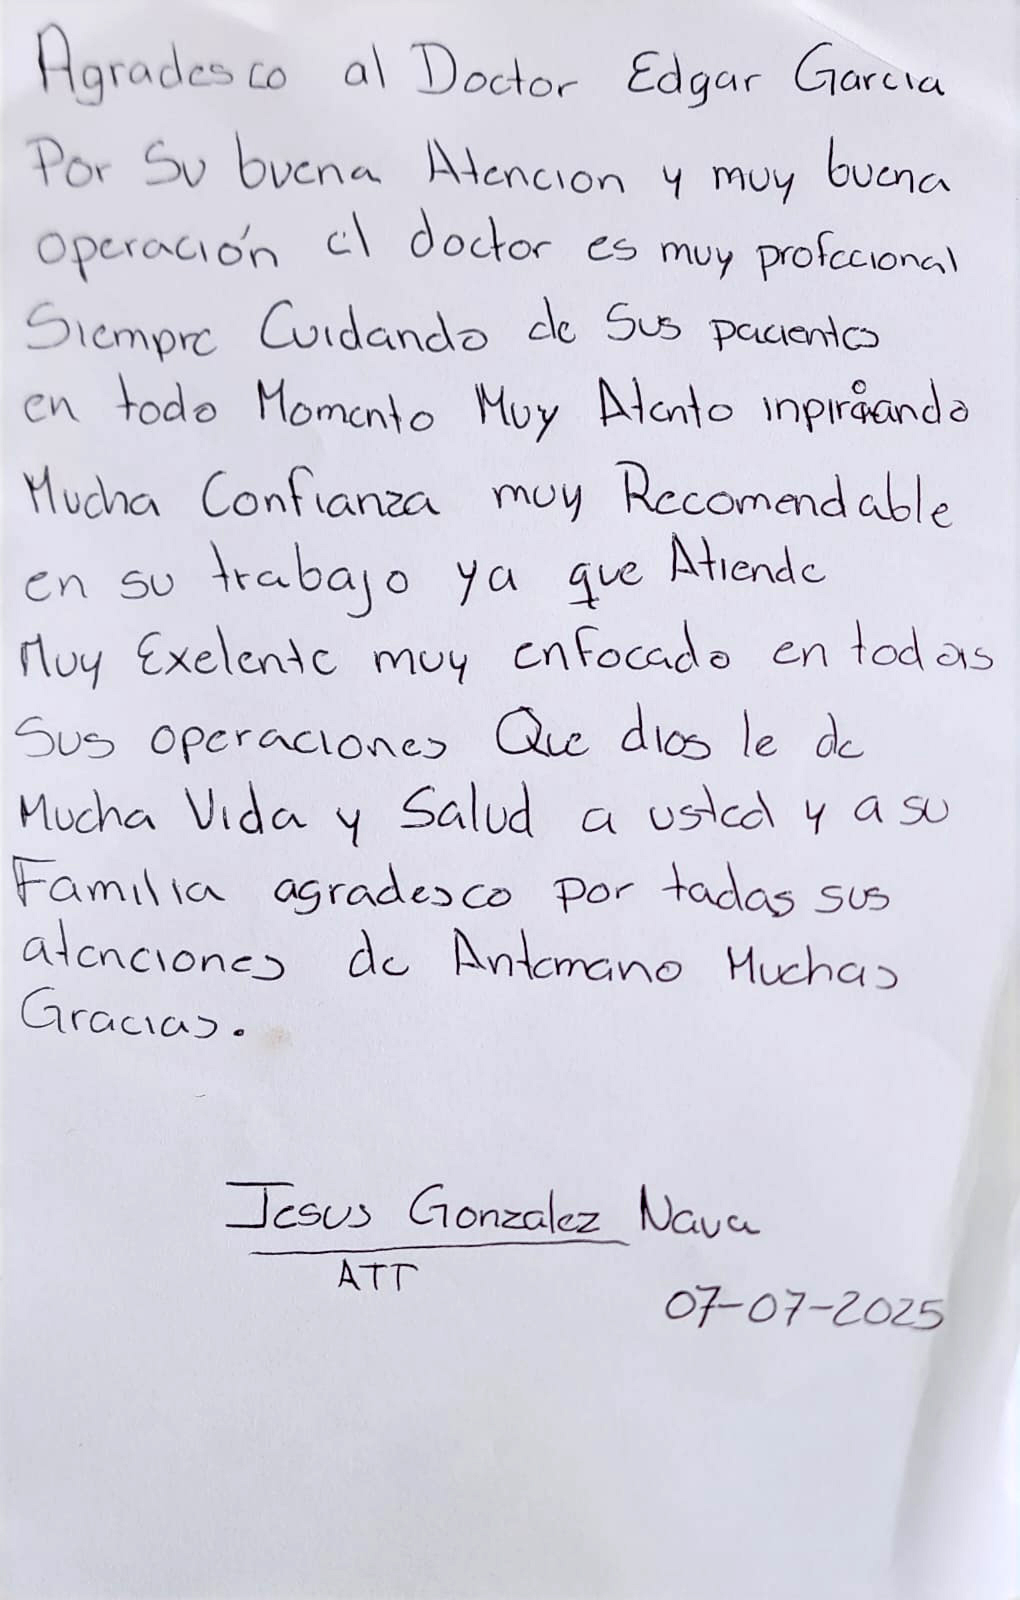 Agradesco al Doctor Edgar Garcia
Por Su buena Atencion y muy buena
operación el doctor es muy profecional
Siempre Cuidando de Sus pacientes
en todo Momento Muy Atento inpirando
Mucha Confianza muy Recomendable
en su trabajo ya que Atiende
Muy Exelente muy enfocado en todas
Sus operaciones Que dios le de
Mucha Vida y Salud a usted y a su
Familia agradesco por tadas sus
atenciones de Antemano Muchas
Gracias.
Jesus Gonzalez Nava
ATT
07-07-2025